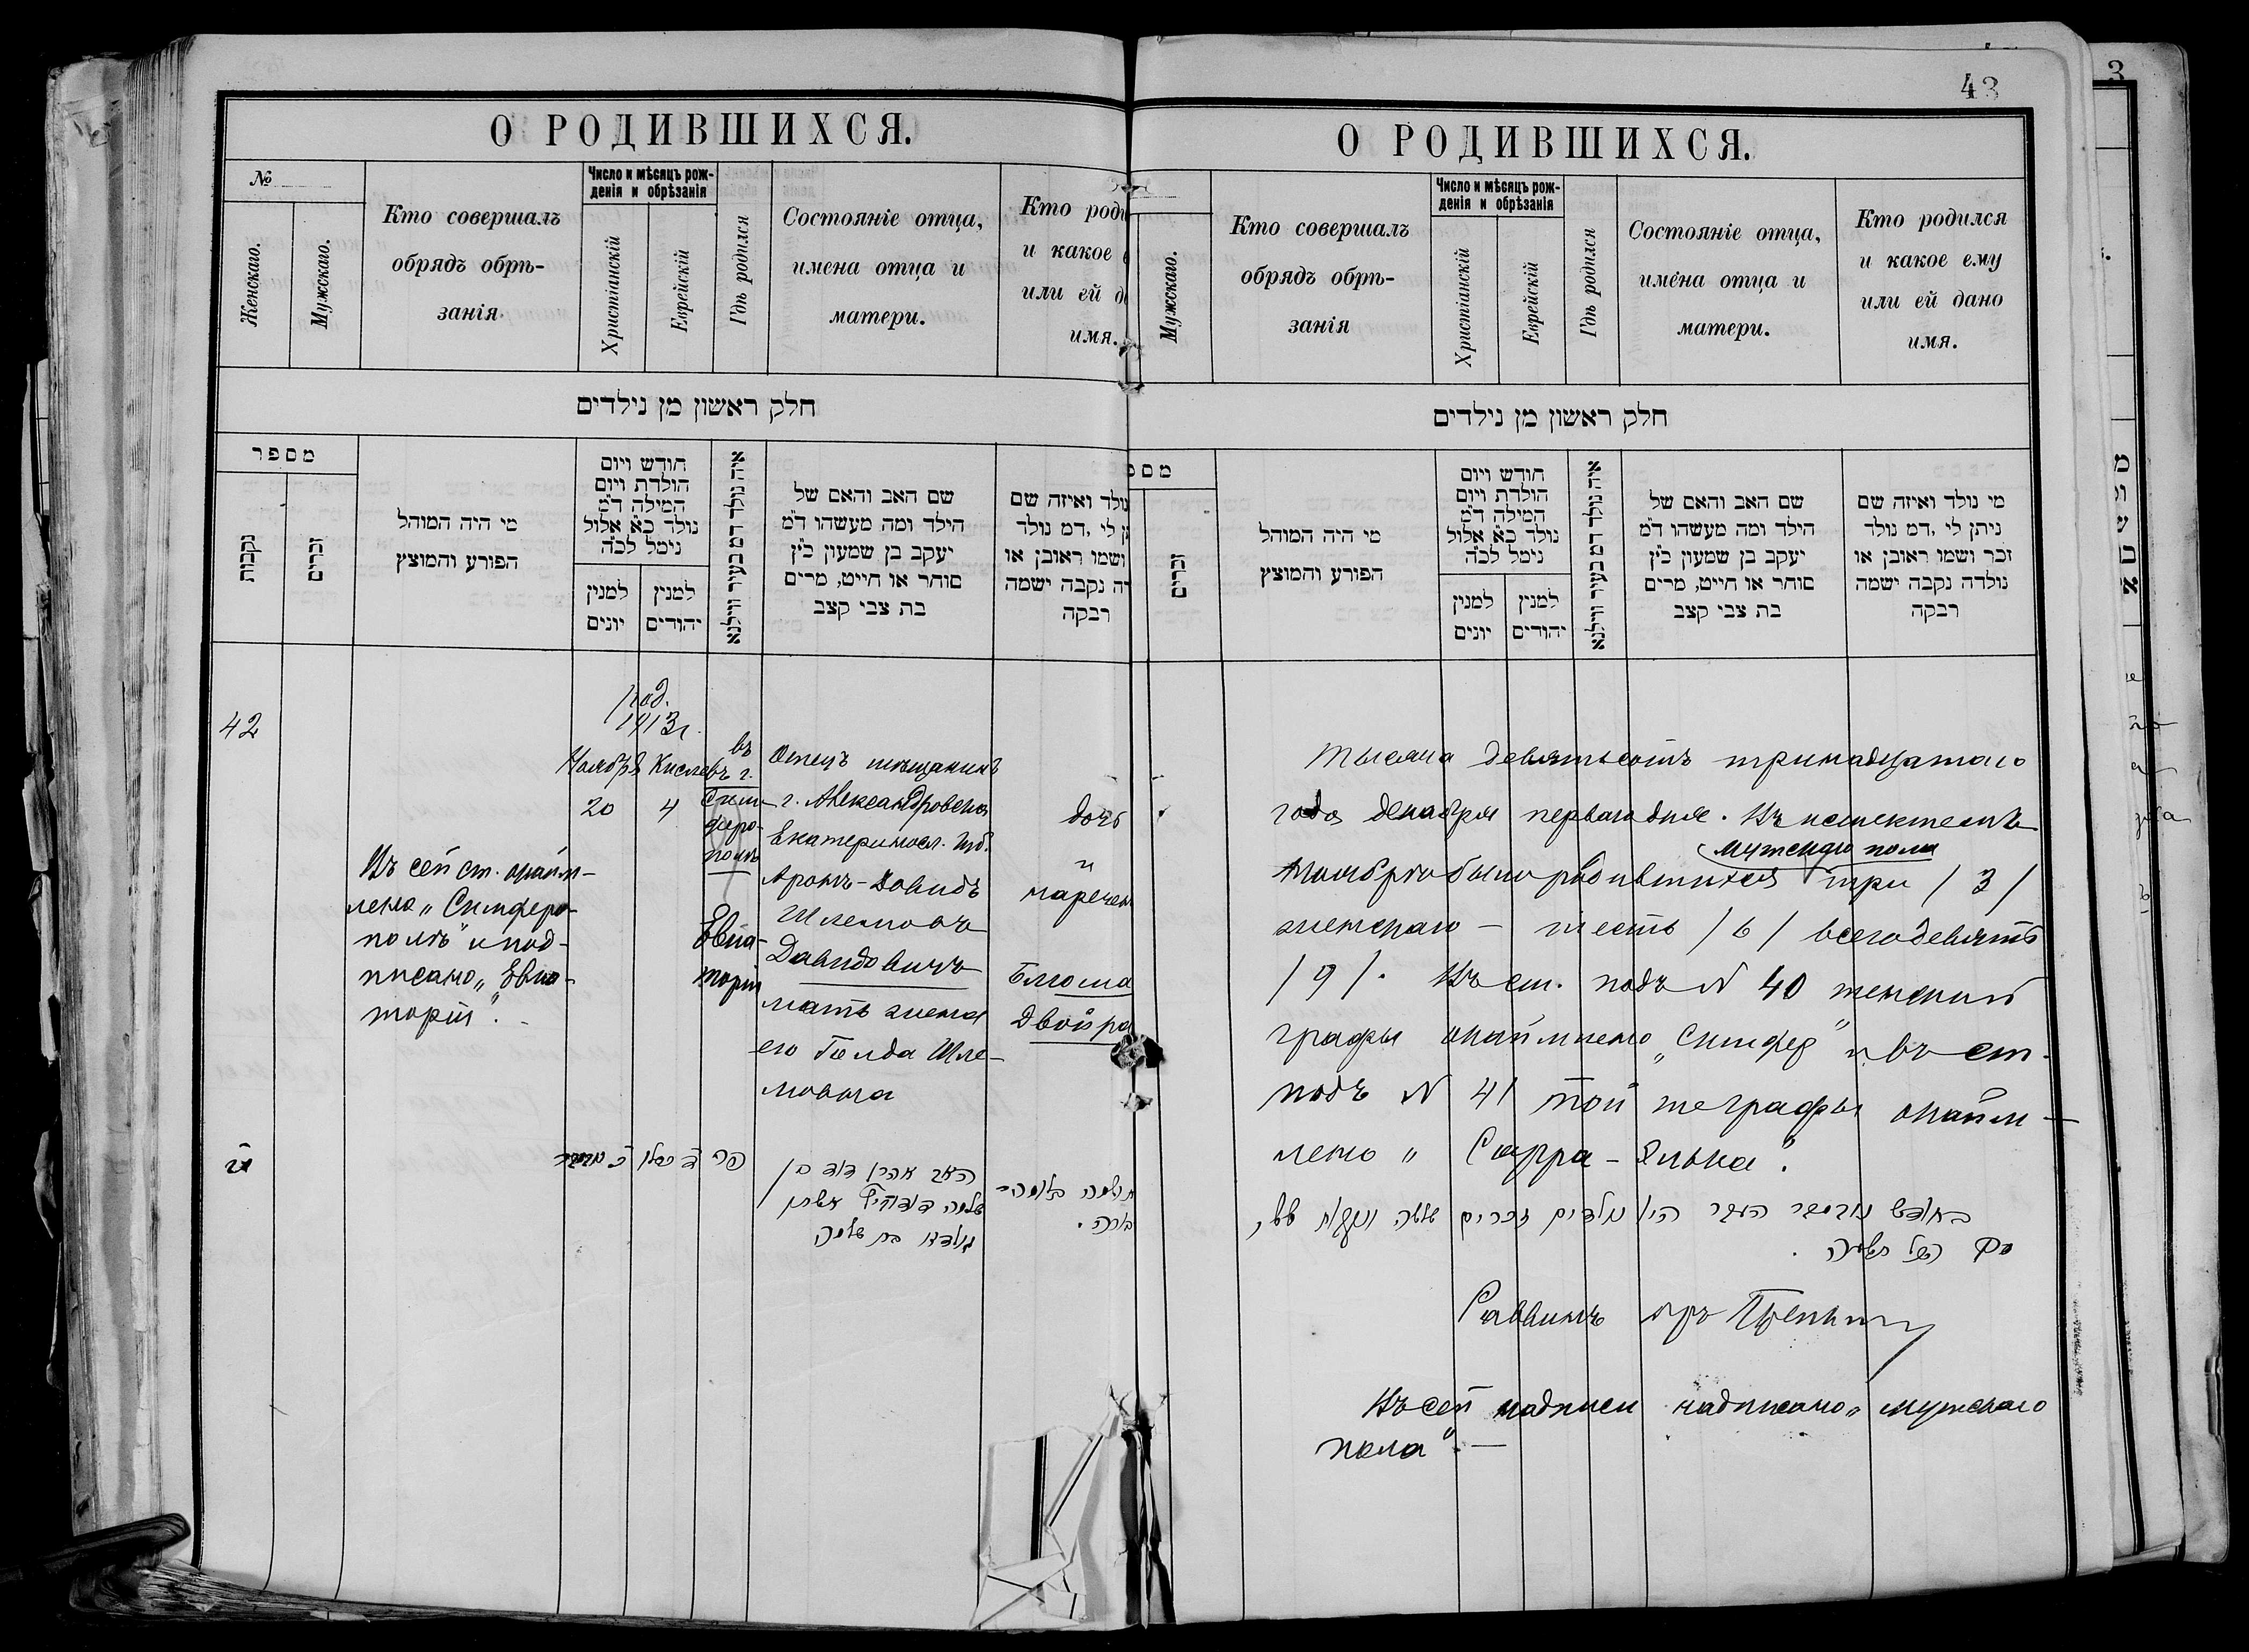 43
3
О РОДИВШИХСЯ.
№
Женскаго.
Мужскаго.
Кто совершалъ
обрядъ обрѣ-
занія
Число и мѣсяцъ рож-
денія и обрѣзанія
Христіанскій
Еврейскій
Гдѣ родился
Состояніе отца,
имена отца и
матери.
Кто роди
и какое е
или ей д
имя.
חלק ראשון מן נילדים
מספר
נקבות
זכרים
מי היה המוהל
הפורע והמוצץ
חודש ויום
הולדת ויום
המילה ד״מ
נולד כא אלול
נימל לכ״ה
למנין
יונים
למנין
יהודים
איה נולד דמ בעיר ווילנא
שם האב והאם של
הילד ומה מעשהו ד״מ
יעקב בן שמעון כ״ץ
סוחר או חייט, מרים
בת צבי קצב
נולד ואיזה שם
ן לי ,דמ נולד
ושמו ראובן או
דה נקבה ישמה
רבקה
42
Въ сей ст. округл-
лено „Симферо-
поль" и под-
писано „Евпа-
торіи".
год.
1913 г.
Ноябрь
20
Кислевъ
4
въ г.
Сим-
феро-
поль
Евпа-
торіи
Отецъ мѣщанинъ
г. Александровска
Екатериносл. губ.
Аронъ-Довидъ
Шлемовъ
Давидовичъ
мать жена
его Голда Шле-
мовна
дочь
и
наречен
Блюма
Двойра
האב אהרן דוד בן
שלמה דודוויץ אשתו
גולדא בת שלמה
О РОДИВШИХСЯ.
Мужскаго.
Кто совершалъ
обрядъ обрѣ-
занія
Число и мѣсяцъ рож-
денія и обрѣзанія
Христіанскій
Еврейскій
Гдѣ родился
Состояніе отца,
имена отца и
матери.
Кто родился
и какое ему
или ей дано
имя.
חלק ראשון מן נילדים
מספ
זכרים
מי היה המוהל
הפורע והמוצץ
חודש ויום
הולדת ויום
המילה ד״מ
נולד כא אלול
נימל לכ״ה
למנין
יונים
למנין
יהודים
איה נולד דמ בעיר ווילנא
שם האב והאם של
הילד ומה מעשהו ד״מ
יעקב בן שמעון כ״ץ
סוחר או חייט, מרים
בת צבי קצב
מי נולד ואיזה שם
ניתן לי ,דמ נולד
זכר ושמו ראובן או
נולדה נקבה ישמה
רבקה
Тысяча девятьсотъ тринадцатаго
года декабря перваго дня. Въ истекшемъ
мужскаго пола
ноябрѣ было родившихся три /3/
женскаго — шесть /6/ всего девять
/9/. Въ ст. подъ № 40 женской
графы „Симфер" и въ ст.
подъ № 41 той же графы
лено „Сарра-Элька".
בחודש נובמבר העבר היו נולדים זכרים שלשה ונקבות שש,
סך הכל תשעה.
Раввинъ
Въ сей надписи надписано „мужскаго
пола". —